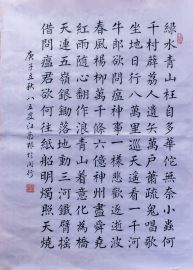 綠水青山枉自多華佗無奈小蟲何
千村薜荔人遺矢萬戶蕭疏鬼唱歌
坐地日行八萬里巡天遙看一千河
牛郎欲問瘟神事一樣悲歡逐逝波
春風楊柳萬千條六億神州盡舜堯
紅雨隨心翻作浪青山着意化為橋
天連五嶺銀鋤落地動三河鐵臂搖
借問瘟君欲何往紙船明燭照天燒
庚子立秋八五叟